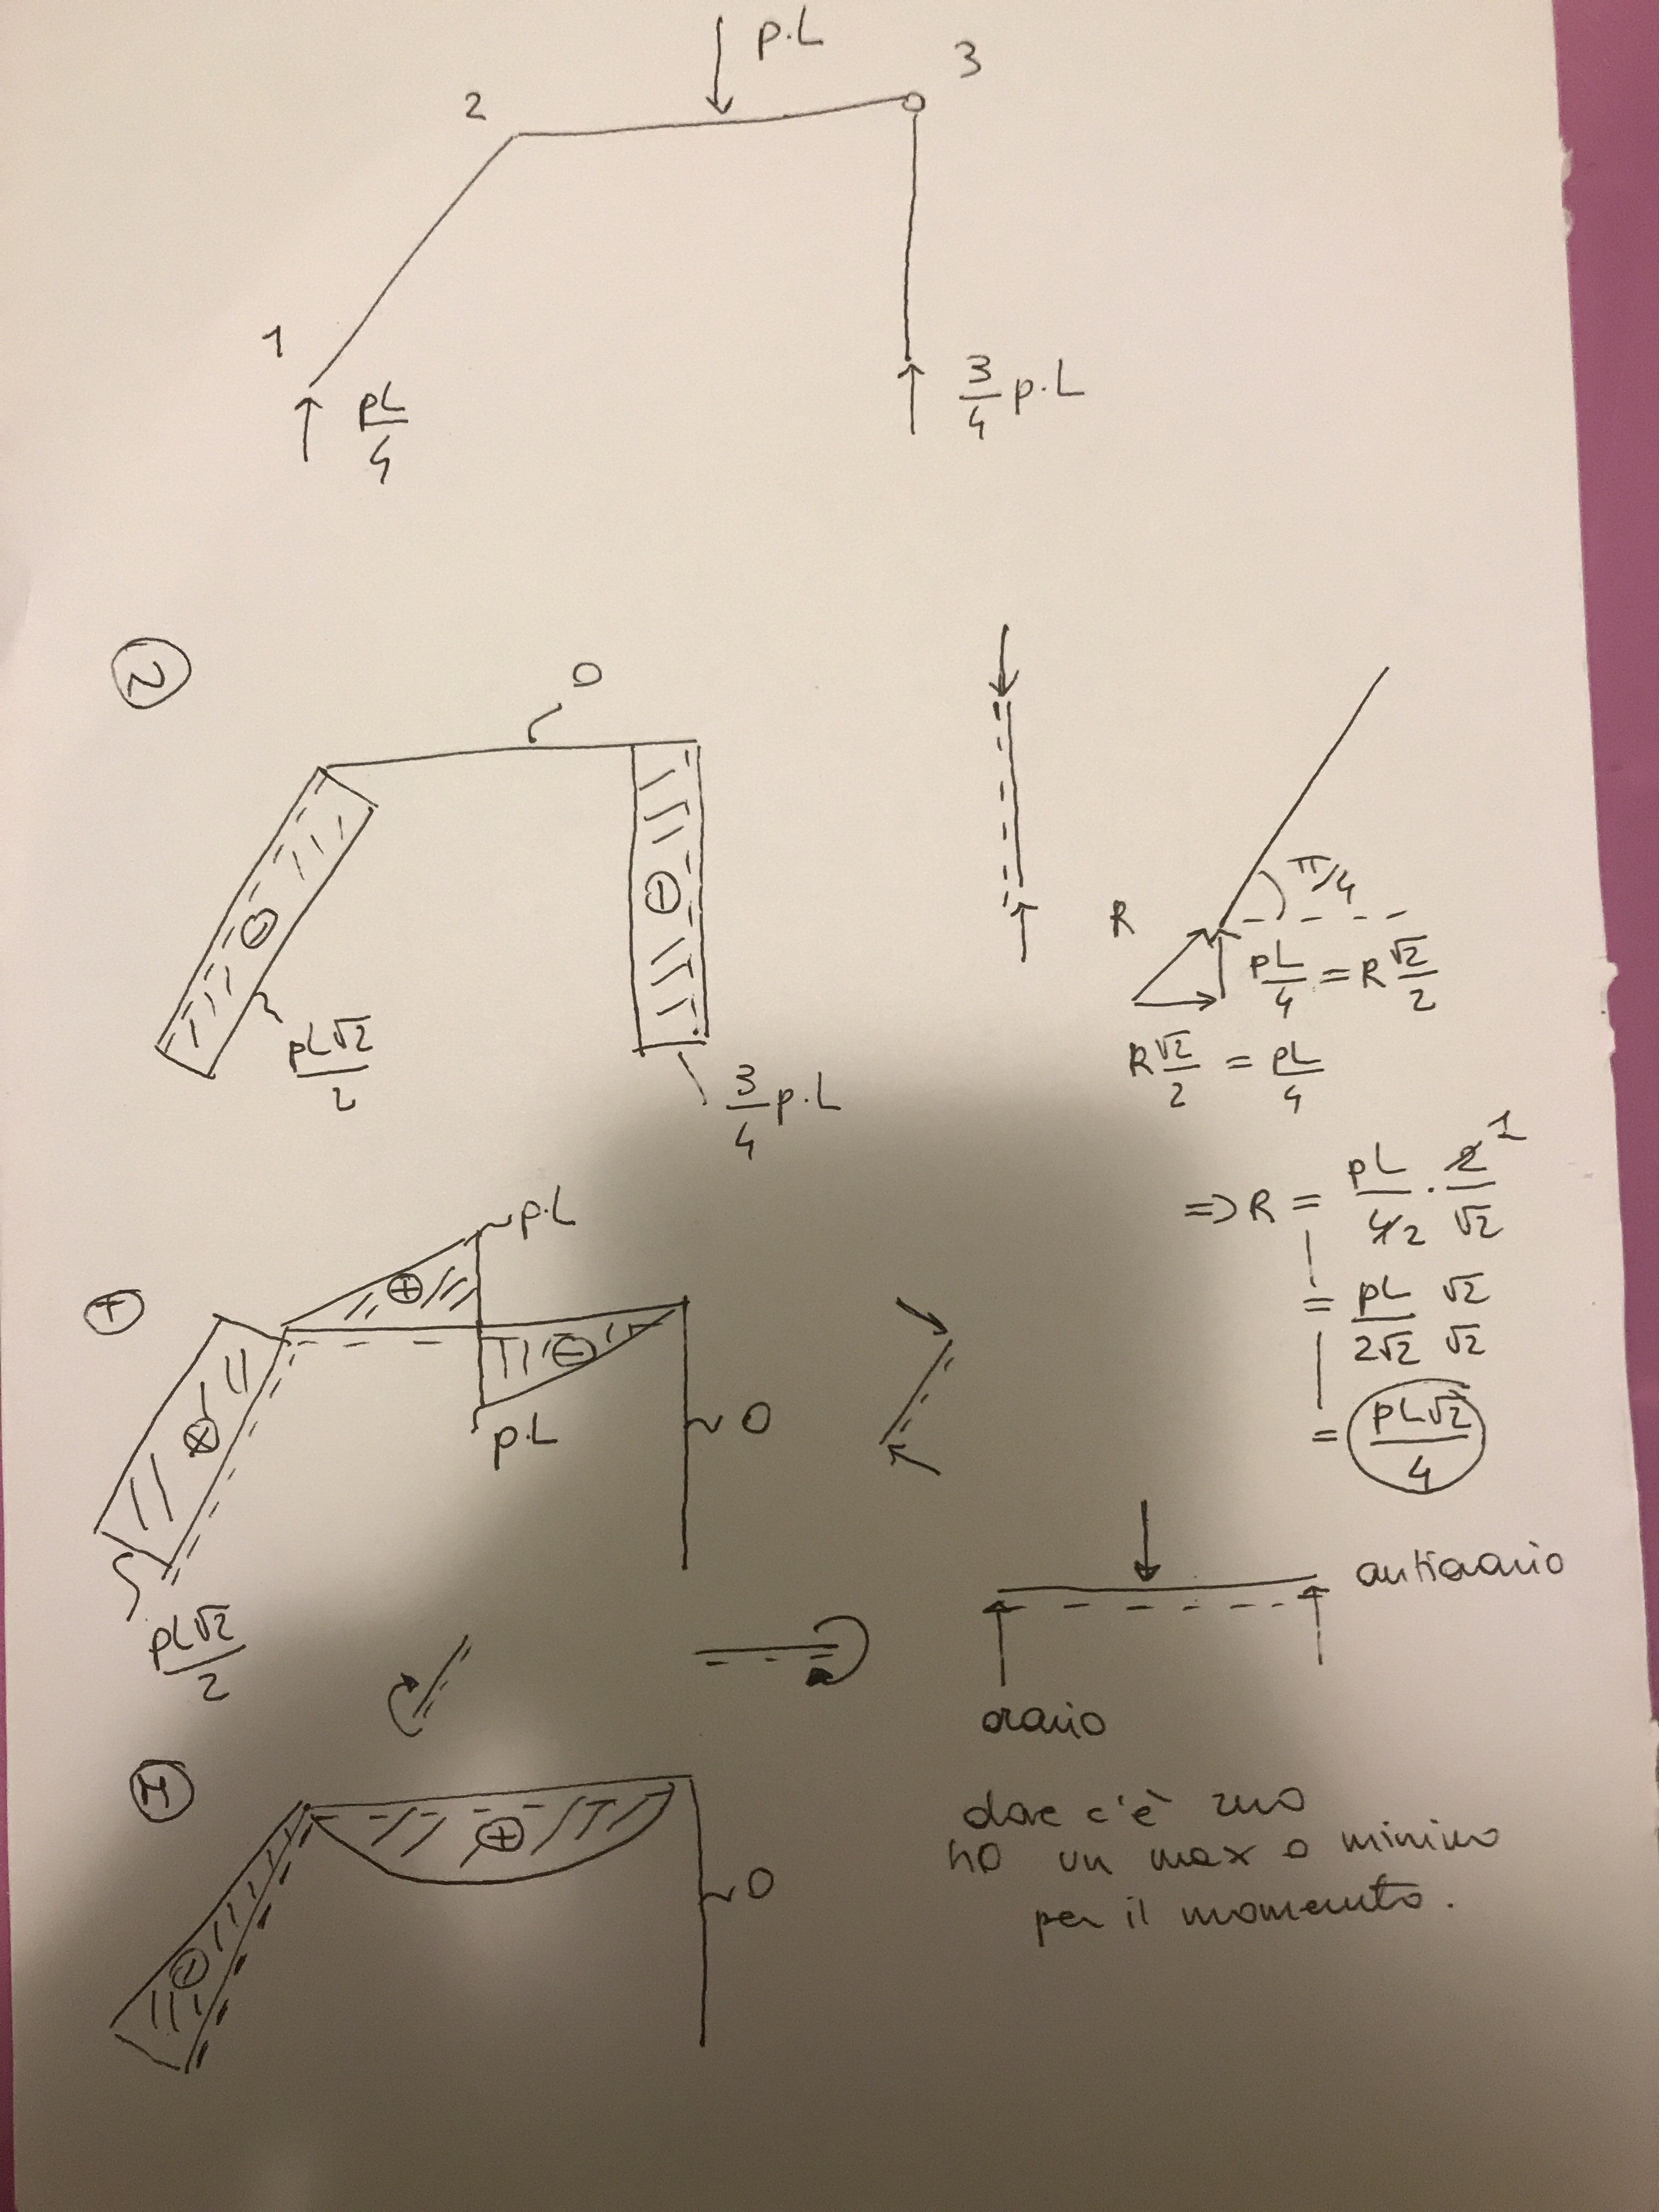 p.L
3
2
1
pL/4
3/4 p.L
N
0
π/4
R
pL/4 = R √2/2
pL√2/2
R √2/2 = pL/4
3/4 p.L
p.L
⇒ R = pL/4 2 . 2 1/√2
= pL/2√2 √2/√2
= pL√2/4
T
+
-
0
p.L
pL√2/2
antiorario
orario
M
+
0
dove c'è zero
ho un max o minimo
per il momento.